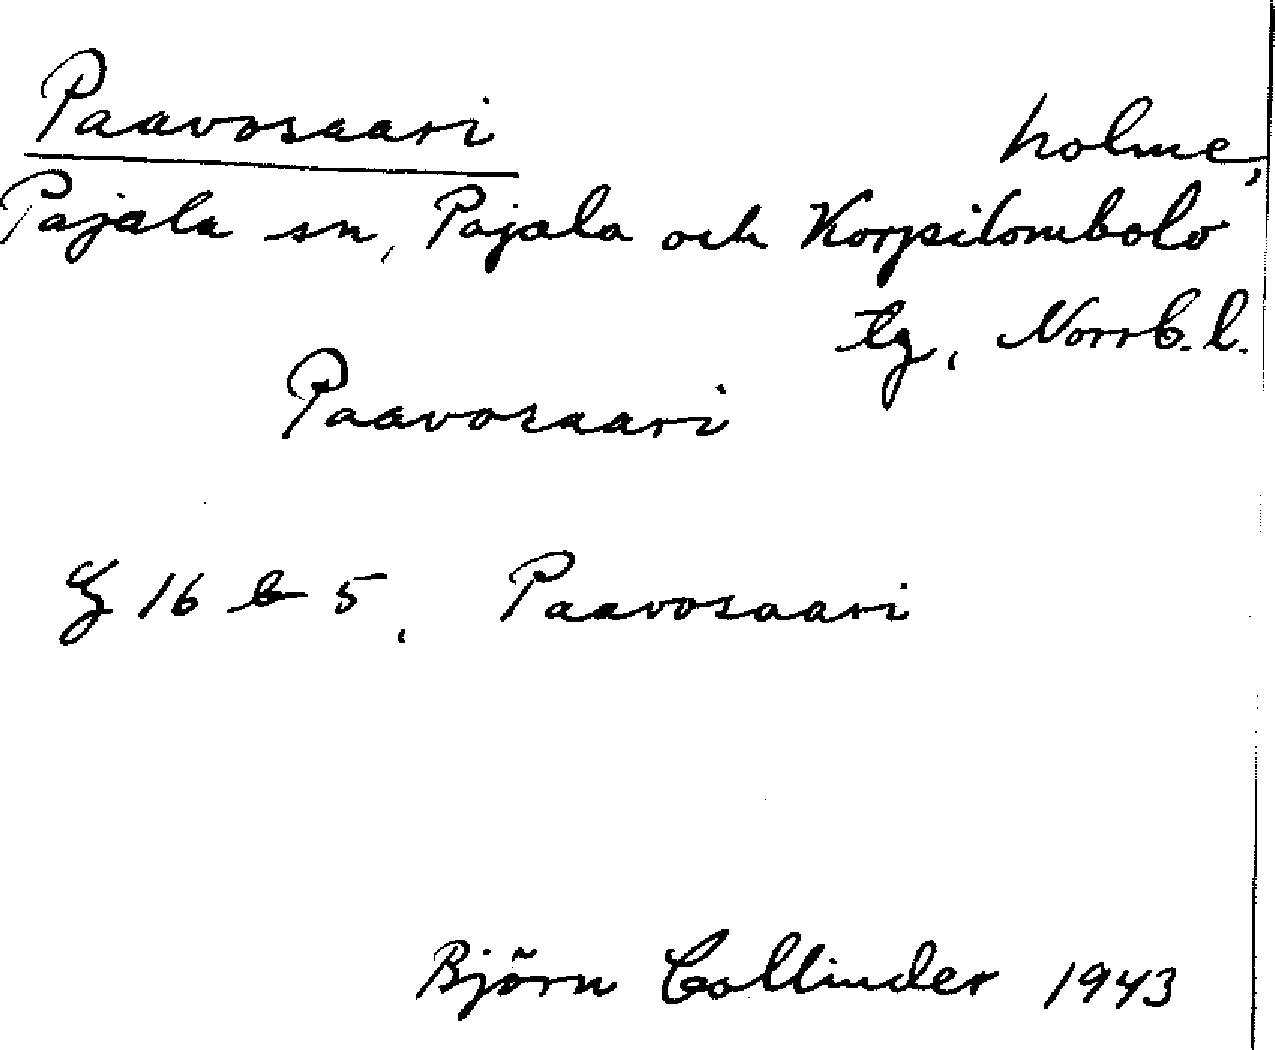 Paavosaari holme,
Pajala sn, Pajala och Korpilombolo
tg, Norrb. l.
Paavosaari
16 b 5, Paavosaari
Björn Collinder 1943